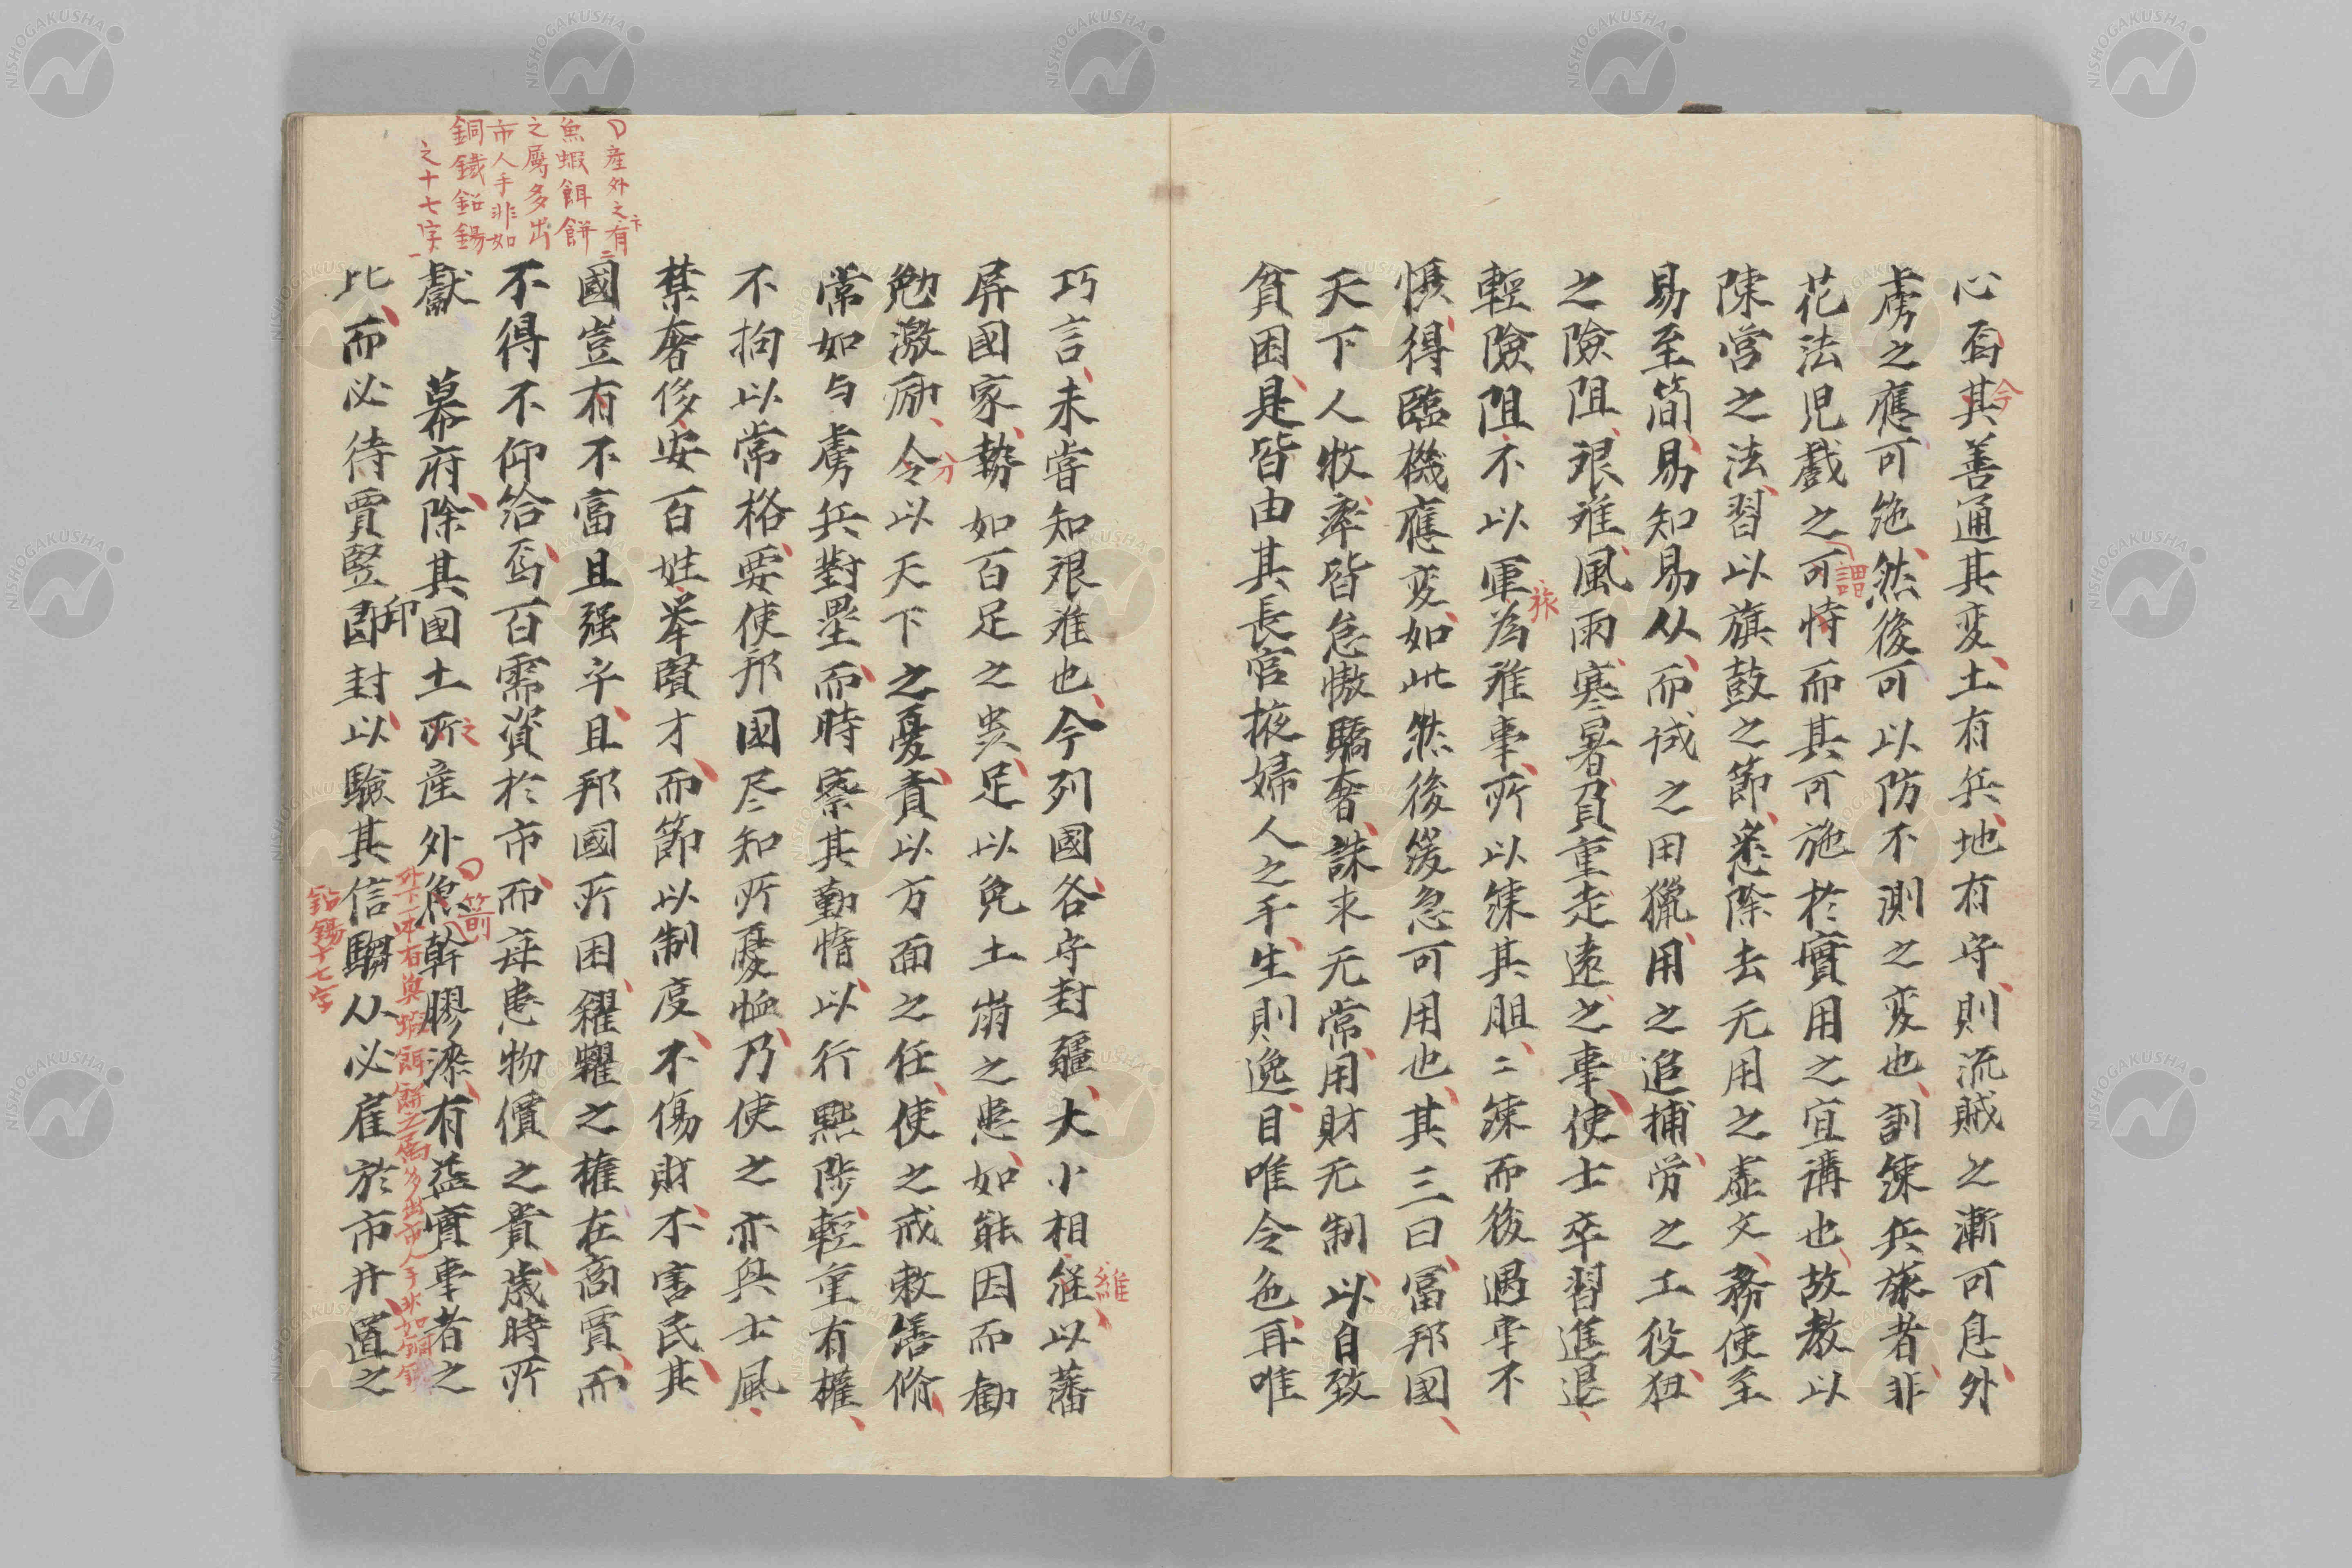 心焉其善通其変土有兵地有守則流賊之漸可息外
今
虜之應可絶然後可以防不測之変也訓練兵旅者非
花法児戲之可恃而其可施於實用之宜講也故教以
謂
陳営之法習以旗鼓之節悉除去无用之虚文務使至
易至簡易知易从而试之田獵用之追捕労之工役狃
之險阻艱难風雨寒暑負重走遠之事使士卒習進退
輕險阻不以軍為难事所以練其胆二練而後遇事不
旅
惧得臨機應変如此然後緩急可用也其三曰冨邦國
天下人牧率皆怠慠驕奢誅求无常用財无制以自致
貧困是皆由其長宮掖婦人之手生則逸目唯令色耳唯
巧言未嘗知艱难也今列國各守封疆大小相維以藩
維
屏國家勢如百足之蚉足以免土崩之患如能因而勸
勉激励令以天下之憂責以方面之任使之戒敕繕脩
分
常如与虜兵對壘而時察其勤惰以行黜陟輕重有權
不拘以常格要使邦國尽知所憂恤乃使之亦與士風
禁奢侈安百姓举賢才而節以制度不傷財不害民其
國豈有不富且强乎且邦國所困糴糶之権在商賈而
不得不仰給焉百需資於市而毎患物價之貴歳時所
獻　幕府除其国土所産外魚幹膠漆有益實事者之
之
箭
外下一本有魚蝦餌餅之屬多出市人手非如銅鉄
鉛錫十七字
比而必待賈竪印封以驗其信騶从必雇於市井道之
産外之有下
魚蝦餌餅
之屬多出
市人手非如
銅鐵鉛錫
之十七字
NISHOGAKUSHA